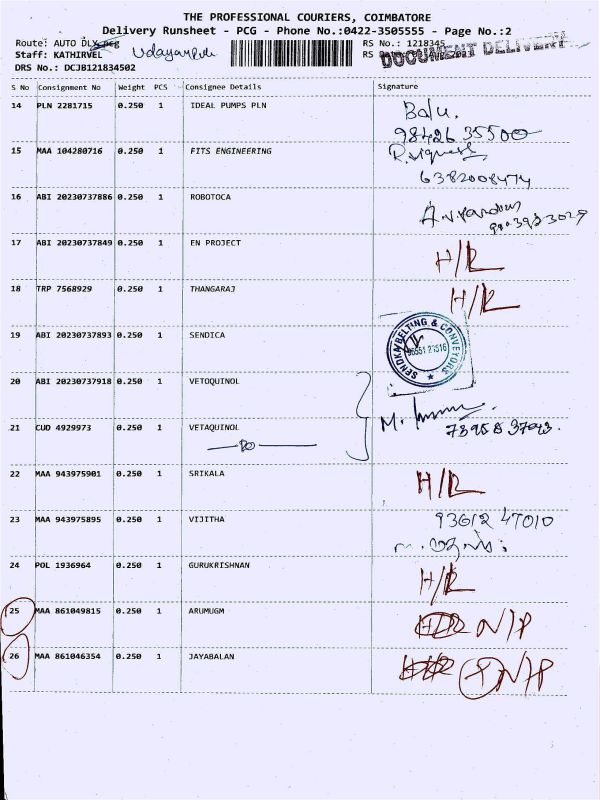 THE PROFESSIONAL COURIERS, COIMBATORE
Delivery Runsheet - PCG - Phone No.:0422-3505555 - Page No.:2
Route: AUTO DLX RS No.: 1218345
Staff: KATHIRVEL RS
DOCUMENT DELIVERY
DRS No.: DCJB121834502
S No Consignment No Weight PCS Consignee Details Signature
14 PLN 2281715 0.250 1 IDEAL PUMPS PLN Balu.
98426 35500
15 MAA 104280716 0.250 1 FITS ENGINEERING
6382008474
16 ABI 20230737886 0.250 1 ROBOTOCA
17 ABI 20230737849 0.250 1 EN PROJECT H/R
18 TRP 7568929 0.250 1 THANGARAJ H/R
19 ABI 20230737893 0.250 1 SENDICA SENDKAI BELTING & CONVEYORS
20 ABI 20230737918 0.250 1 VETOQUINOL
21 CUD 4929973 0.250 1 VETAQUINOL M.
22 MAA 943975901 0.250 1 SRIKALA H/R
23 MAA 943975895 0.250 1 VIJITHA 93612 47010
24 POL 1936964 0.250 1 GURUKRISHNAN H/R
25 MAA 861049815 0.250 1 ARUMUGM N/P
26 MAA 861046354 0.250 1 JAYABALAN N/P